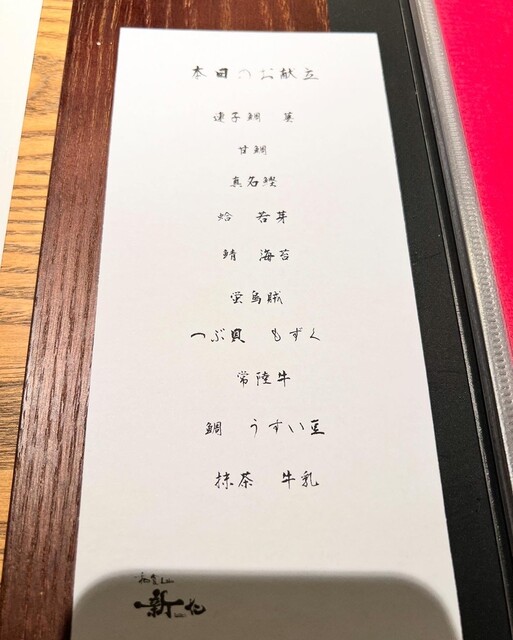 本日のお献立
連子鯛 菜
甘鯛
真名鰹
蛤 若芽
鯖 海苔
蛍烏賊
つぶ貝 もずく
常陸牛
鯛 うすい豆
抹茶 牛乳
新